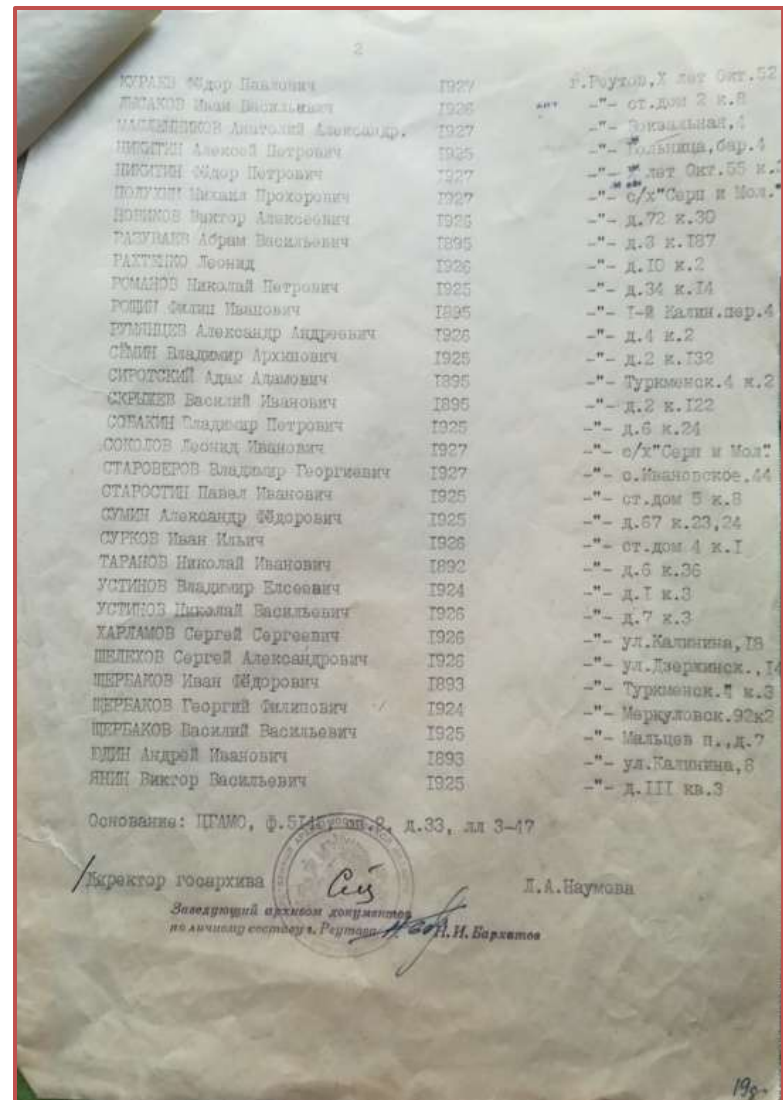 2
КУРАЕВ Фёдор Павлович 1927 г.Реутов,Х лет Окт.52
ЛЫСАКОВ Иван Васильевич 1926 -"- ст.дом 2 к.8
МАСЛЕННИКОВ Анатолий Александр. 1927 -"- Вокзальная,4
НИКИТИН Алексей Петрович 1925 -"- Больница,бар.4
НИКИТИН Фёдор Петрович 1927 -"- лет Окт.55 к.
ПОЛУХИН Михаил Прохорович 1927 -"- с/х"Серп и Мол."
НОВИКОВ Виктор Алексеевич 1926 -"- д.72 к.30
РАЗУВАЕВ Абрам Васильевич 1895 -"- д.3 к.187
РАХТЕНКО Леонид 1926 -"- д.10 к.2
РОМАНОВ Николай Петрович 1925 -"- д.34 к.14
РОЩИН Филип Иванович 1895 -"- 1-й Калин.пер.4
РУМЯНЦЕВ Александр Андреевич 1926 -"- д.4 к.2
СЁМИН Владимир Архипович 1925 -"- д.2 к.132
СИРОТСКИЙ Адам Адамович 1895 -"- Туркменск.4 к.2
СКРЫЖЕВ Василий Иванович 1895 -"- д.2 к.122
СОБАКИН Владимир Петрович 1925 -"- д.6 к.24
СОКОЛОВ Леонид Иванович 1927 -"- с/х"Серп и Мол."
СТАРОВЕРОВ Владимир Георгиевич 1927 -"- с.Ивановское,44
СТАРОСТИН Павел Иванович 1925 -"- ст.дом 5 к.8
СУМИН Александр Фёдорович 1925 -"- д.67 к.23,24
СУРКОВ Иван Ильич 1926 -"- ст.дом 4 к.1
ТАРАНОВ Николай Иванович 1892 -"- д.6 к.36
УСТИНОВ Владимир Елсеевич 1924 -"- д.1 к.3
УСТИНОВ Николай Васильевич 1926 -"- д.7 к.3
ХАРЛАМОВ Сергей Сергеевич 1926 -"- ул.Калинина,18
ШЕЛЕХОВ Сергей Александрович 1926 -"- ул.Дзержинск.,14
ЩЕРБАКОВ Иван Фёдорович 1893 -"- Туркменск. к.3
ЩЕРБАКОВ Георгий Филипович 1924 -"- Меркуловск.92к2
ЩЕРБАКОВ Василий Васильевич 1925 -"- Мальцев п.,д.7
ЮДИН Андрей Иванович 1893 -"- ул.Калинина,8
ЯНИН Виктор Васильевич 1925 -"- д.III кв.3
Основание: ЦГАМО, ф.5145, оп.2, д.33, лл 3-47
Директор госархива Л.А.Наумова
Заведующий архивом документов
по личному составу г. Реутова Н. И. Бархатов